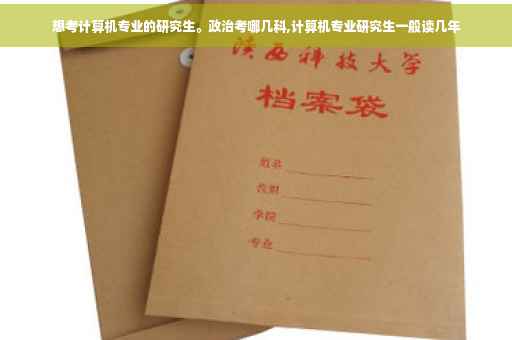 想考计算机专业的研究生。政治考哪几科,计算机专业研究生一般读几年
陕西科技大学
档案袋
姓名
学院
专业